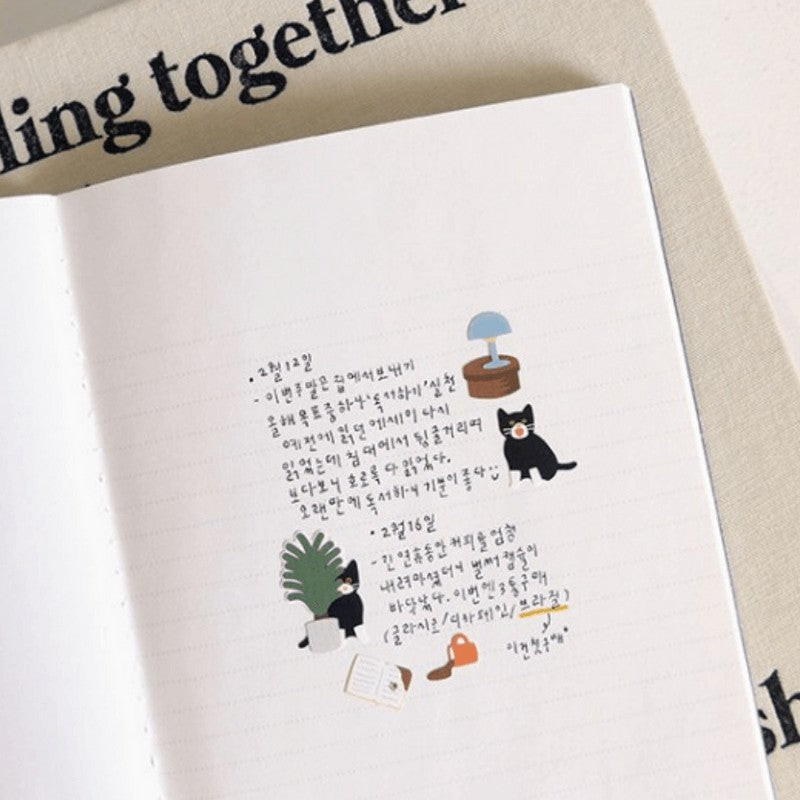 ling together
• 2월 12일
- 이번주말은 집에서 보내기
올해 목표중 하나 '독서하기' 실천
예전에 읽던 에세이 다시
읽었는데 침대에서 뒹굴거리며
보다보니 호로록 다 읽었다.
오랜만에 독서하니 기분이 좋다
• 2월 16일
- 긴 연휴동안 커피를 엄청
내려마셨더니 벌써 캡슐이
바닥났다. 이번엔 3통 구매
(글라시로/디카페인/브라질)
이건 첫구매
sh